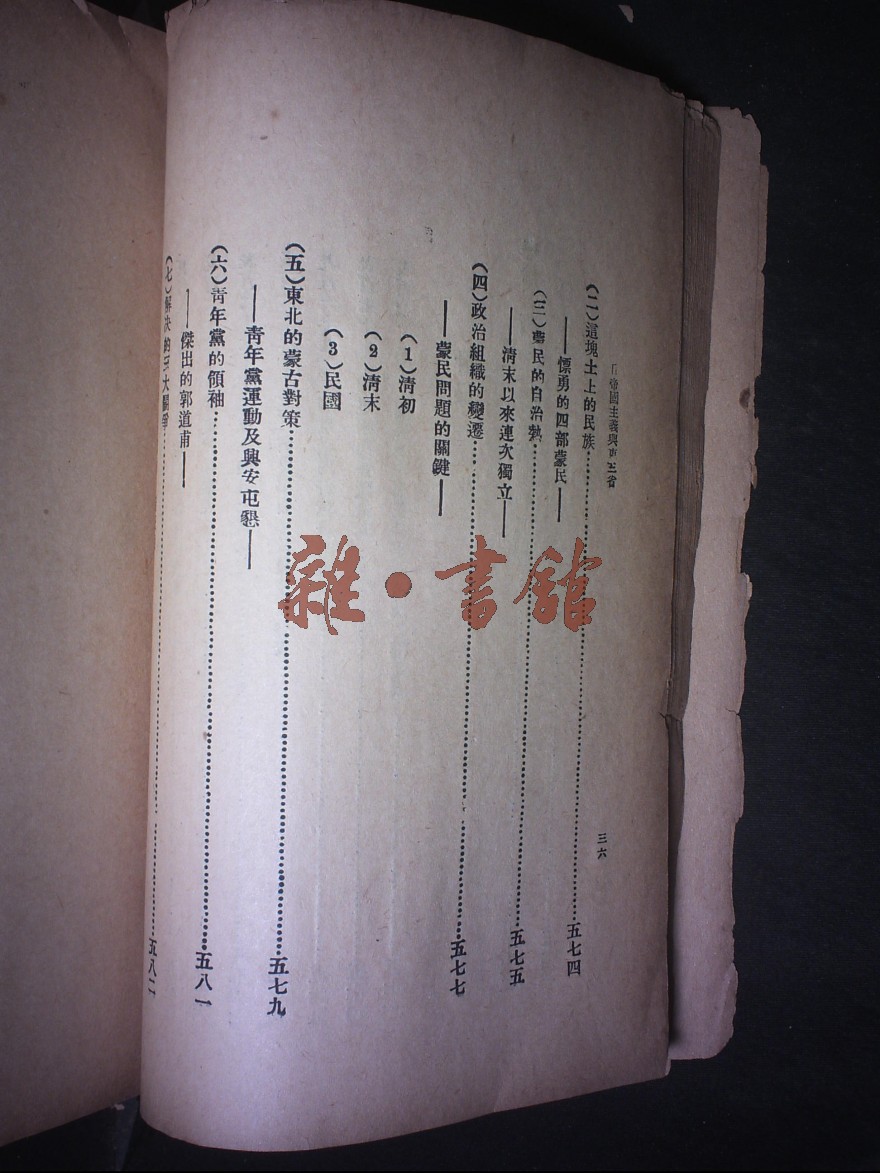 日帝國主義與東三省
三六
(二)這塊土上的民族……五七四
——慓勇的四部蒙民——
(三)蒙民的自治熱……五七五
——清末以來連次獨立——
(四)政治組織的變遷……五七七
——蒙民問題的關鍵——
(1)清初
(2)清末
(3)民國
(五)東北的蒙古對策……五七九
——青年黨運動及興安屯懇——
(六)青年黨的領袖……五八一
——傑出的郭道甫——
(七)解決的三大關爭……五八二
雜·書館